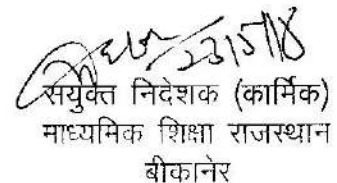 23/5/18
संयुक्त निदेशक (कार्मिक)
माध्यमिक शिक्षा राजस्थान
बीकानेर